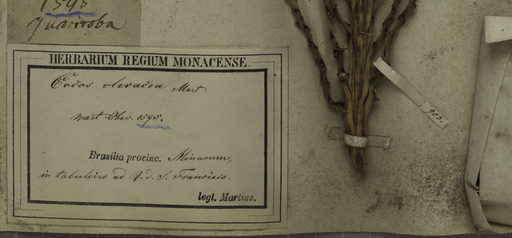 1595
Guariroba
HERBARIUM REGIUM MONACENSE.
Cocos oleracea Mart.
Mart. Obs. 1595.
Brasilia provinc. Minarum,
in tabuleiro ad S. Francisco.
legt. Martius.